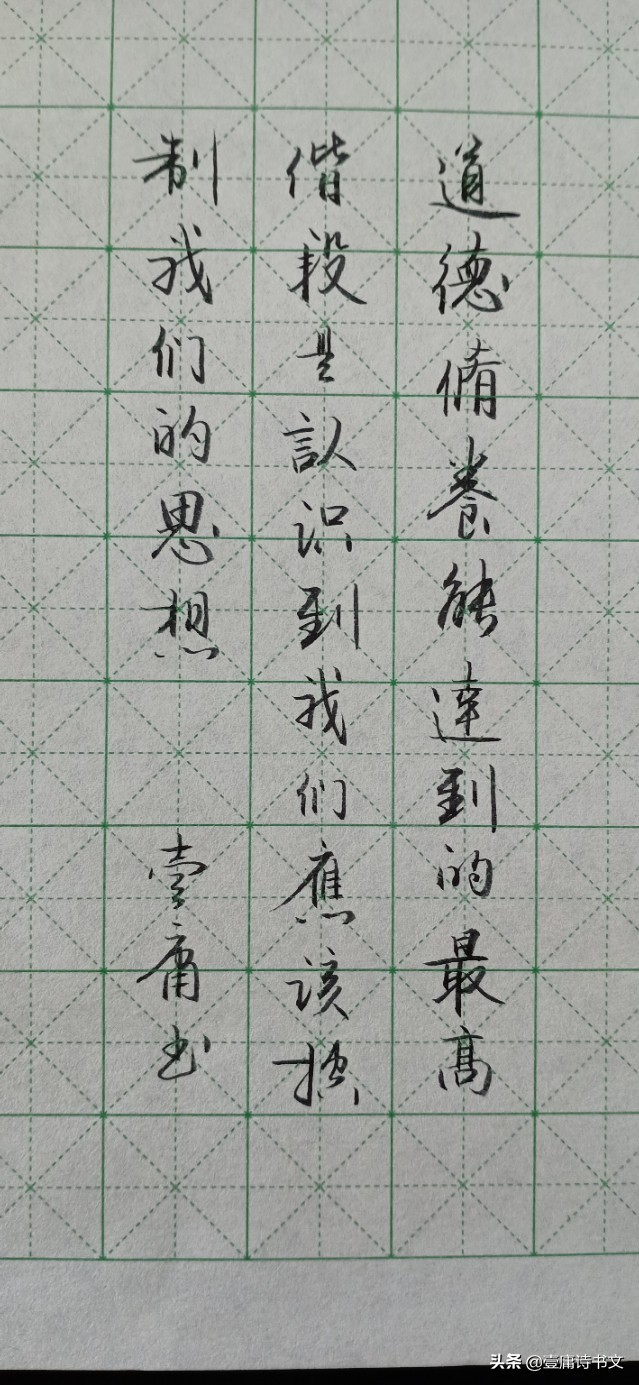 道德脩養能達到的最高
偕段是认识到我们應该控
制我们的思想 壹庸书
头条 @壹庸诗书文